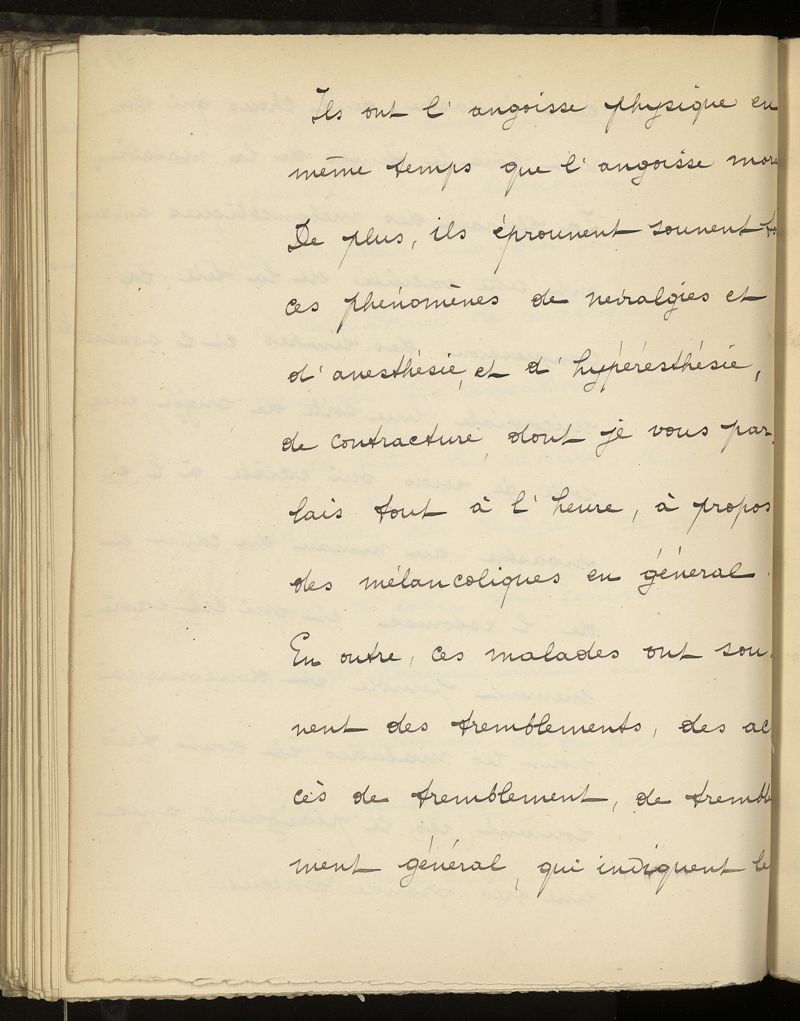 Ils ont l'angoisse physique en
même temps que l'angoisse mor
De plus, ils éprouvent souvent
ces phénomènes de névralgies et
d'anesthésie, et d'hypéresthésie,
de contracture, dont je vous par-
lais tout à l'heure, à propos
des mélancoliques en général.
En outre, ces malades ont sou-
vent des tremblements, des ac
cès de tremblement, de tremble
ment général, qui indiquent le